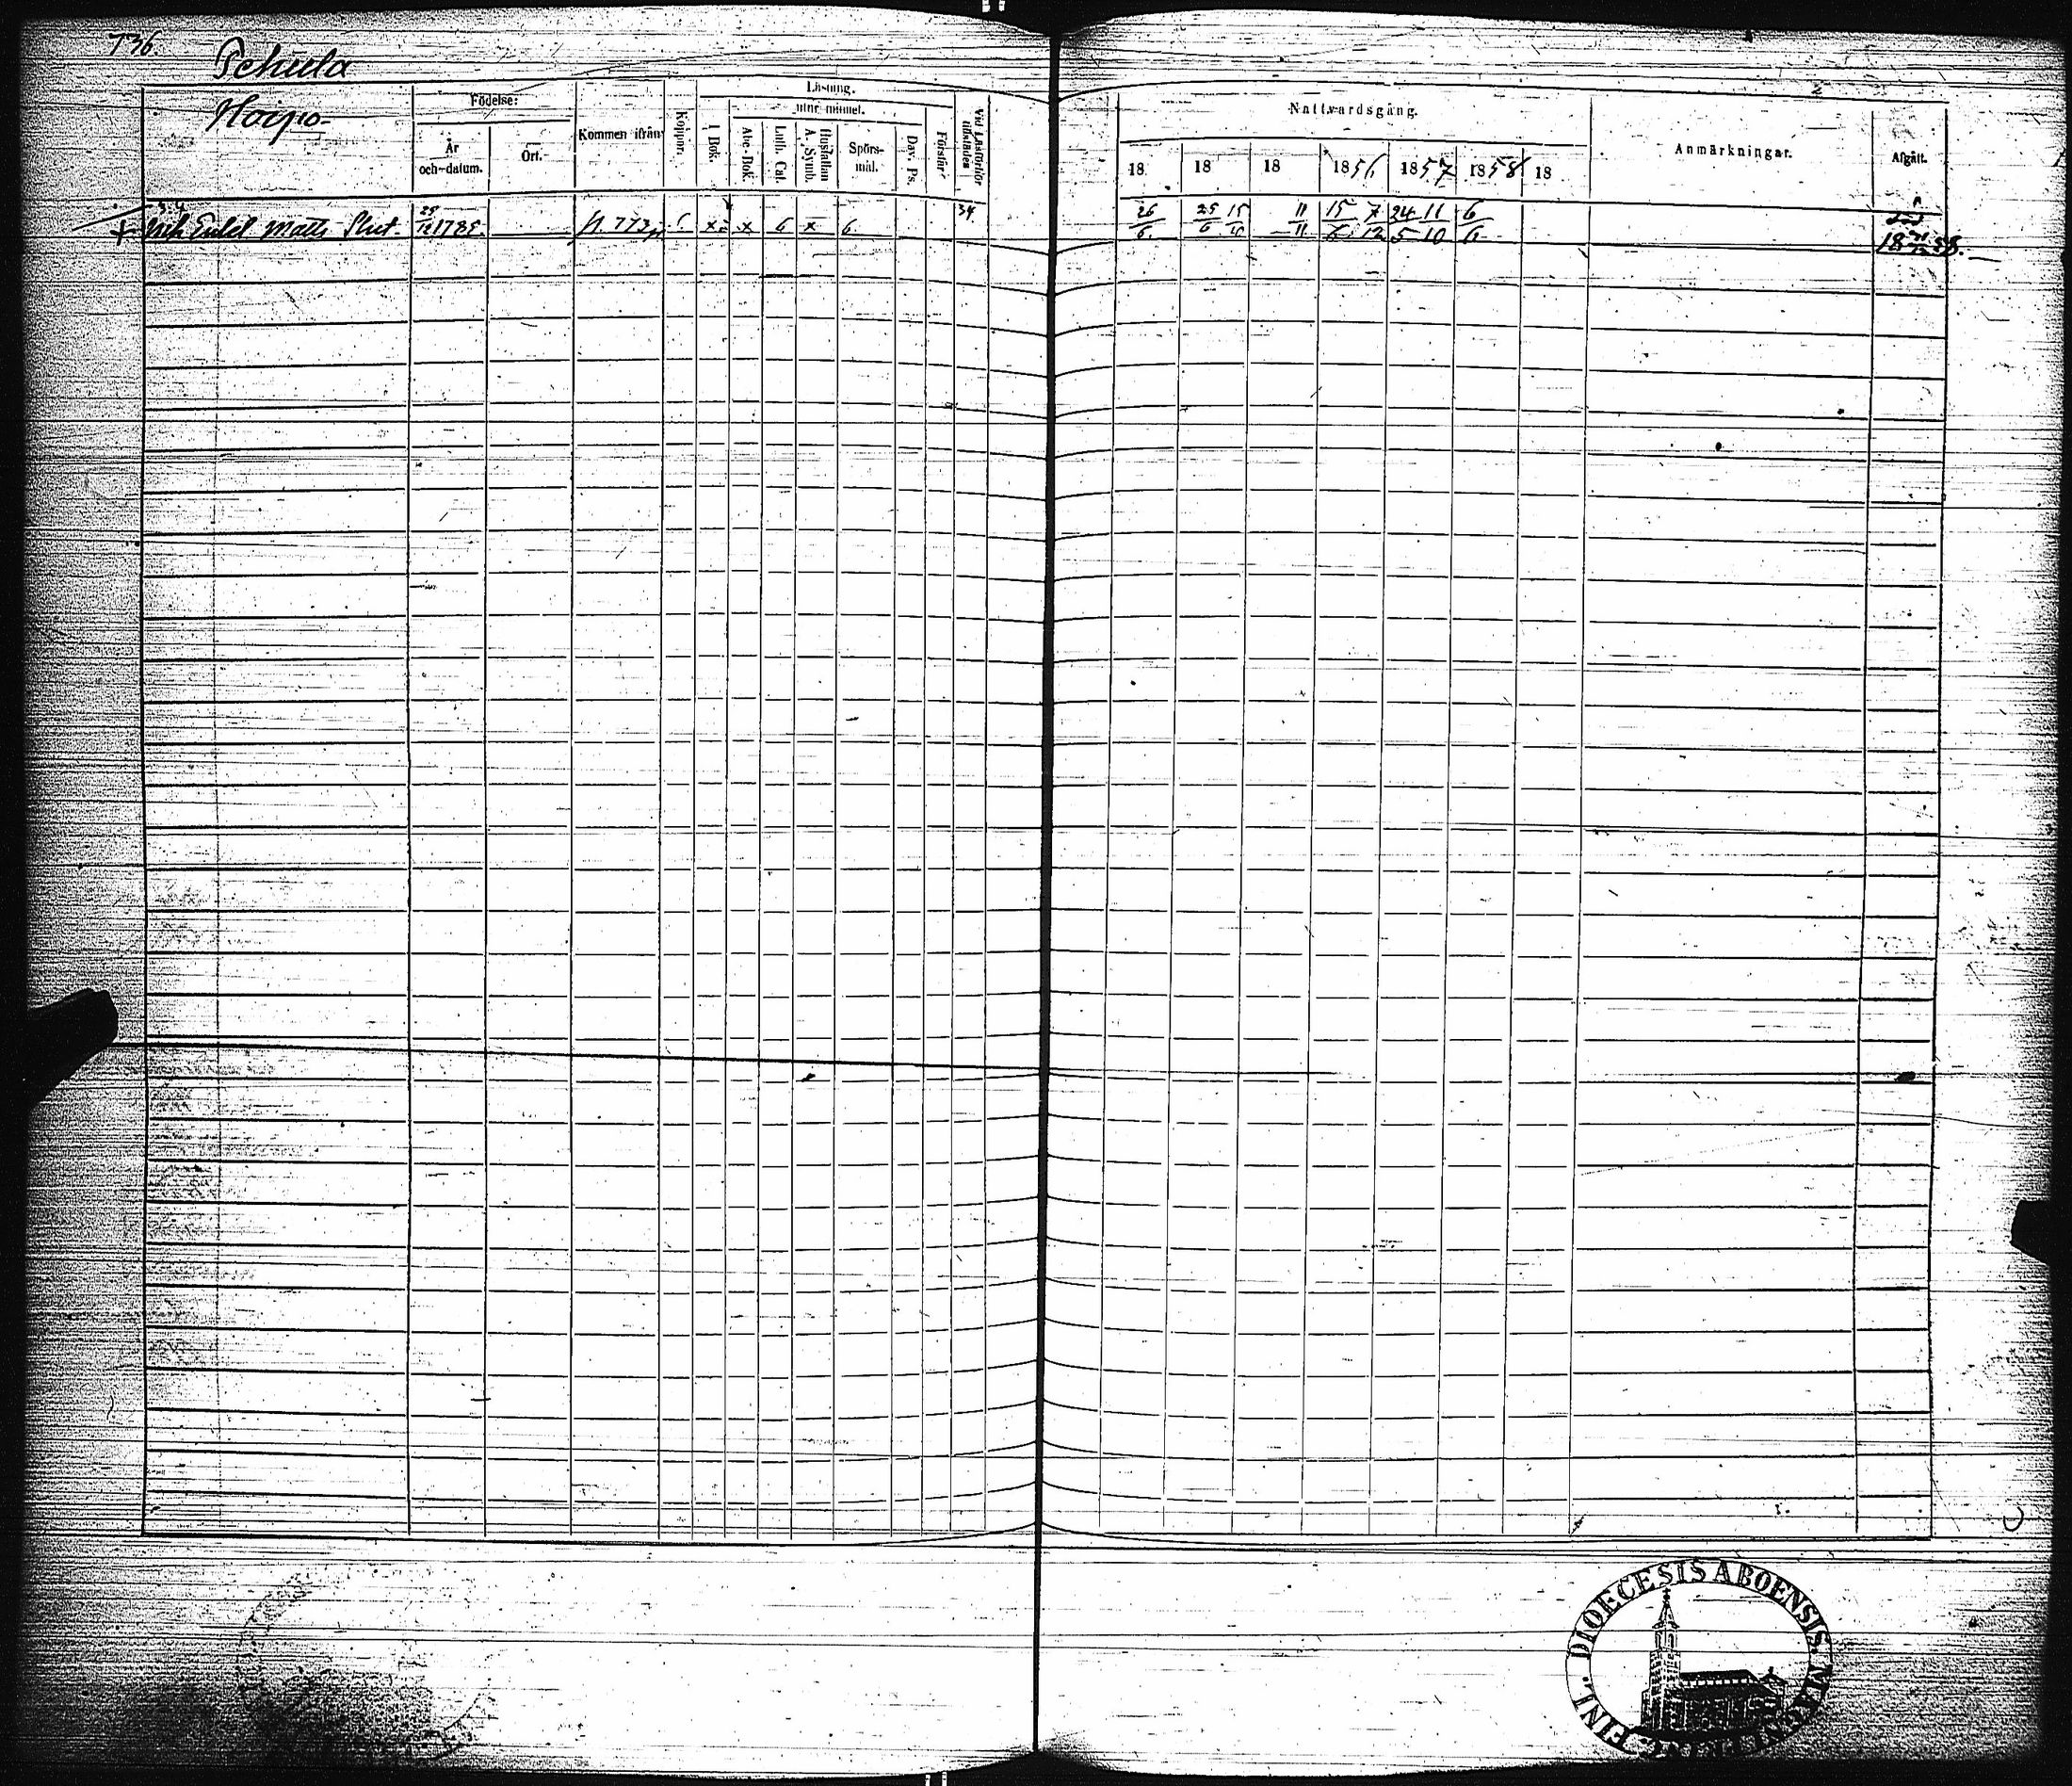 736.
Pehula
Horpo
Födelse:
År och-datum.
Ort.
Kommen ifrån
Koppor.
Läsning.
utur minnet.
I Bok.
Abc-Bok.
Luth. Cat.
Hustaflan A. Symb.
Spörs-mål.
Dav. Ps.
Förstår
Vid Läsförhör tillstädes
Nattvardsgång.
18
18
18
1856
1857
1858
18
Anmärkningar.
Afgått.
Enkl Matts
12 1785
p. 773
x
x
6
x
6.
34
26/6
25/6
15/10
11/11
15/6
7/12
24/5
11/10
6/6
58.
FINL. DIOECESIS ABOENSIS